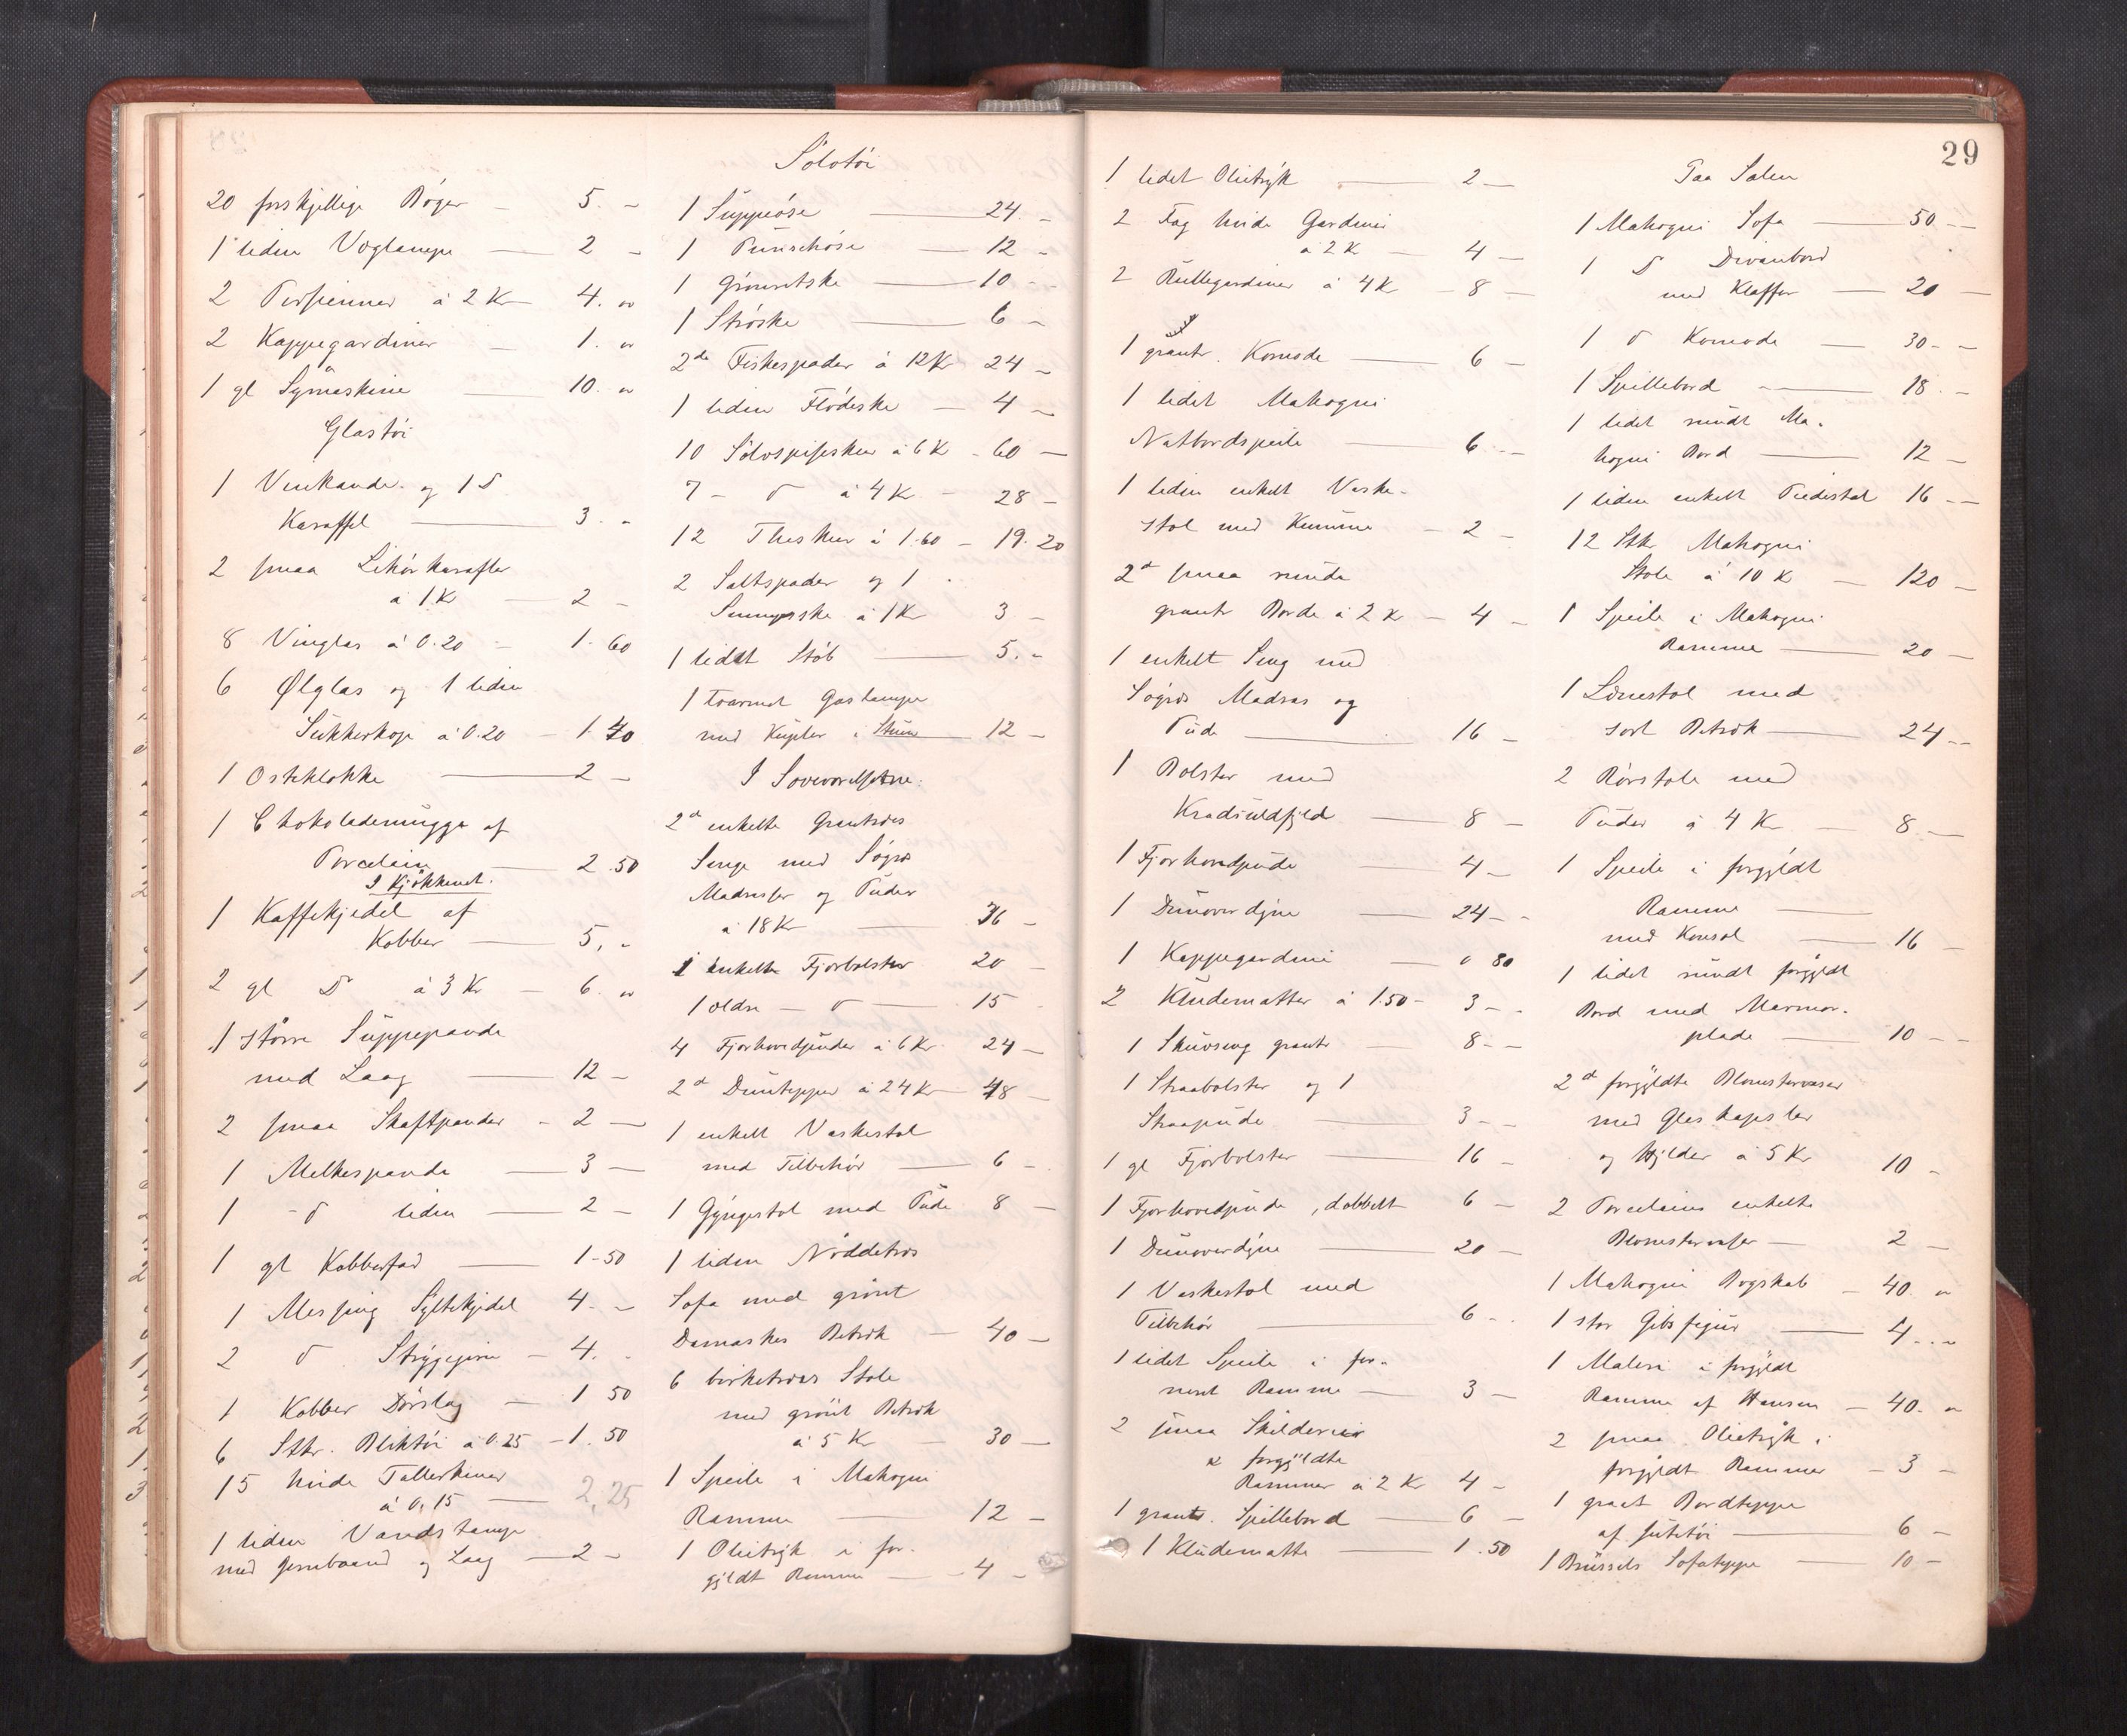 20 forskjellige Bøger - 5. -
1 liden Voglampe - 2 -
2 Persienner à 2 Kr 4. "
2 Kappegardiner - 1. "
1 gl Symaskine - 10. "
Glastøi
1 Vinkande og 1 do
Karaffel - 3. -
2 smaa Likørkarafler
à 1 K - 2 -
8 Vinglas à 0.20 - 1.60
6 Ølglas og 1 liden
Sukkerkop à 0.20 - 1.40
1 Osteklokke - 2 -
1 Chokolademugge af
Porcelain - 2.50
I Kjøkkenet.
1 Kaffekjedel af
Kobber - 5, -
2 gl do à 3 Kr - 6. "
1 større Suppepande
med Laag - 12 -
2 smaa Skaftpander - 2 -
1 Melkespande - 3 -
1 - do liden - 2 -
1 gl Kobberfad - 1-50
1 Messing Syltekjedel 4. -
2 do Strygejern - 4. -
1 Kobber Dørslag - 1 50
6 Stkr. Bliktøi à 0.25 - 1.50
15 hvide Tallerkener
à 0,15 - 2,25
1 liden Vandstampe
med Jernbaand og Laag - 2 -
Sølvtøi
1 Suppeøse - 24. -
1 Punschøse - 12 -
1 Grønsetske - 10 -
1 Strøske - 6 -
2de Fiskespader à 12 Kr 24 -
1 liden Flødeske - 4 -
10 Sølvspiseskeer à 6 K - 60 -
7 - do à 4 K - 28 -
12 Theskeer à 1.60 - 19.20
2 Saltspader og 1
Sennepsske à 1 Kr 3 -
1 lidet Støb - 5. -
1 toarmet Gaslampe
med Kupler i Stuen 12 -
I Soveværelserne.
2de enkelte Grantræs
Senge med Søgræs
Madrasser og Puder
à 18 Kr - 36 -
1 enkelt Fjorbolster 20 -
1 ældre - do - 15
4 Fjorhovedpuder à 6 Kr. 24 -
2de Duntepper à 24 Kr - 48 -
1 enkelt Vaskestol
med Tilbehør - 6 -
1 Gyngestol med Pude 8 -
1 liden Nøddetræs
Sofa med grønt
Damaskes Betræk - 40 -
6 birketræs Stole
med grønt Betræk
à 5 Kr - 30 -
1 Speile i Mahogni
Ramme - 12 -
1 Olietryk i for-
gyldt Ramme - 4 -
29
1 lidet Olietryk - 2 -
2 Fag hvide Gardiner
à 2 K - 4 -
2 Rullegardiner à 4 Kr - 8 -
1 grantr. Komode - 6 -
1 lidet Mahogni
Natbordspeile - 6 -
1 liden enkelt Vaske-
stol med Kumme - 2 -
2de smaa runde
grantr Borde à 2 K - 4 -
1 enkelt Seng med
Søgræs Madras og
Pude - 16 -
1 Bolster med
Kraduldfjeld - 8 -
1 Fjorhovedpude - 4 -
1 Dunoverdyne - 24 -
1 Kappegardine - 0 80
2 Kludematter à 1.50 - 3 -
1 Skuvseng grantr - 8 -
1 Straabolster og 1
Straapude - 3 -
1 gl Fjorbolster - 16 -
1 Fjorhovedpude, dobbelt 6 -
1 Dunoverdyne - 20 -
1 Vaskestol med
Tilbehør - 6 -
1 lidet Speile i for-
neret Ramme - 3 -
2 smaa Skilderier
i forgyldte
Rammer à 2 Kr 4 -
1 grantr. Spillebord - 6 -
1 Kludematte - 1.50
Paa Salen
1 Mahogni Sofa - 50 -
1 do Divanbord
med Klaffer - 20 -
1 do Komode - 30 -
1 Spillebord - 18 -
1 lidet rundt Ma-
hogni Bord - 12 -
1 liden enkelt Piedestal 16 -
12 Stk Mahogni
Stole à 10 K - 120 -
1 Speile i Mahogni
Ramme - 20 -
1 Lænestol med
sort Betræk - 24 -
2 Rørstole med
Puder à 4 Kr - 8 -
1 Speile i forgyldt
Ramme -
med Konsol - 16 -
1 lidet rundt forgyldt
Bord med Marmor-
plade - 10 -
2de forgyldte Blomstervaser
med Glaskapsler
og Hylder à 5 Kr 10 -
2 Porcelains enkelte
Blomstervaser - 2 -
1 Mahogni Bogskab - 40. "
1 stor Gibsfigur - 4 -
1 Maleri i forgyldt
Ramme af Hansen - 40. "
2 smaa Olietryk i
forgyldt Rammer - 3 -
1 graat Bordteppe
af Jutetøi - 6 -
1 Brüssels Sofateppe - 10 -